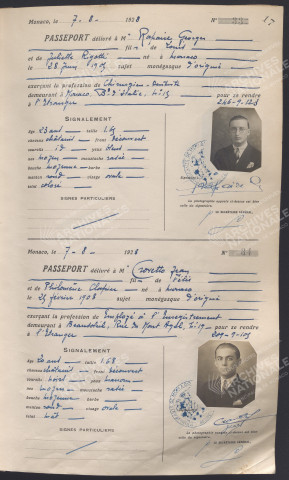 17
Monaco, le 7-8-1928 N°
PASSEPORT délivré à M' Rohaire Georges
fils de Louis
et Juliette Rigotti né à Monaco
le 28 Juin 1905 sujet monégasque d'origine
exerçant la profession de Chirurgien-Dentiste
demeurant à Monaco, Bd d'Italie, N° 15 pour se rendre
à l'Etranger
SIGNALEMENT
âge 23 ans taille
cheveux châtain front découvert
sourcils id yeux bleus
nez moyen moustache rasée
bouche moyenne barbe
menton rond visage ovale
teint coloré
SIGNES PARTICULIERS
La photographie apposée ci-dessus est bien
celle du signataire.
LE SECRÉTAIRE GÉNÉRAL,
Monaco, le 7-8-1928 N°
PASSEPORT délivré à M' Crovetto Jean
fils de Félix
et Philomène né à Monaco
le 25 février 1908 sujet monégasque d'origine
exerçant la profession de Employé à l'Enregistrement
demeurant à Beausoleil, Rue du Mont Agel, pour se rendre
à l'Etranger
SIGNALEMENT
âge 20 ans taille 1.68
cheveux châtain front découvert
sourcils noirs yeux marron
nez moyen moustache rasée
bouche moyenne barbe
menton rond visage ovale
teint mat
SIGNES PARTICULIERS
La photographie apposée ci-dessus est bien
celle du signataire.
LE SECRÉTAIRE GÉNÉRAL,